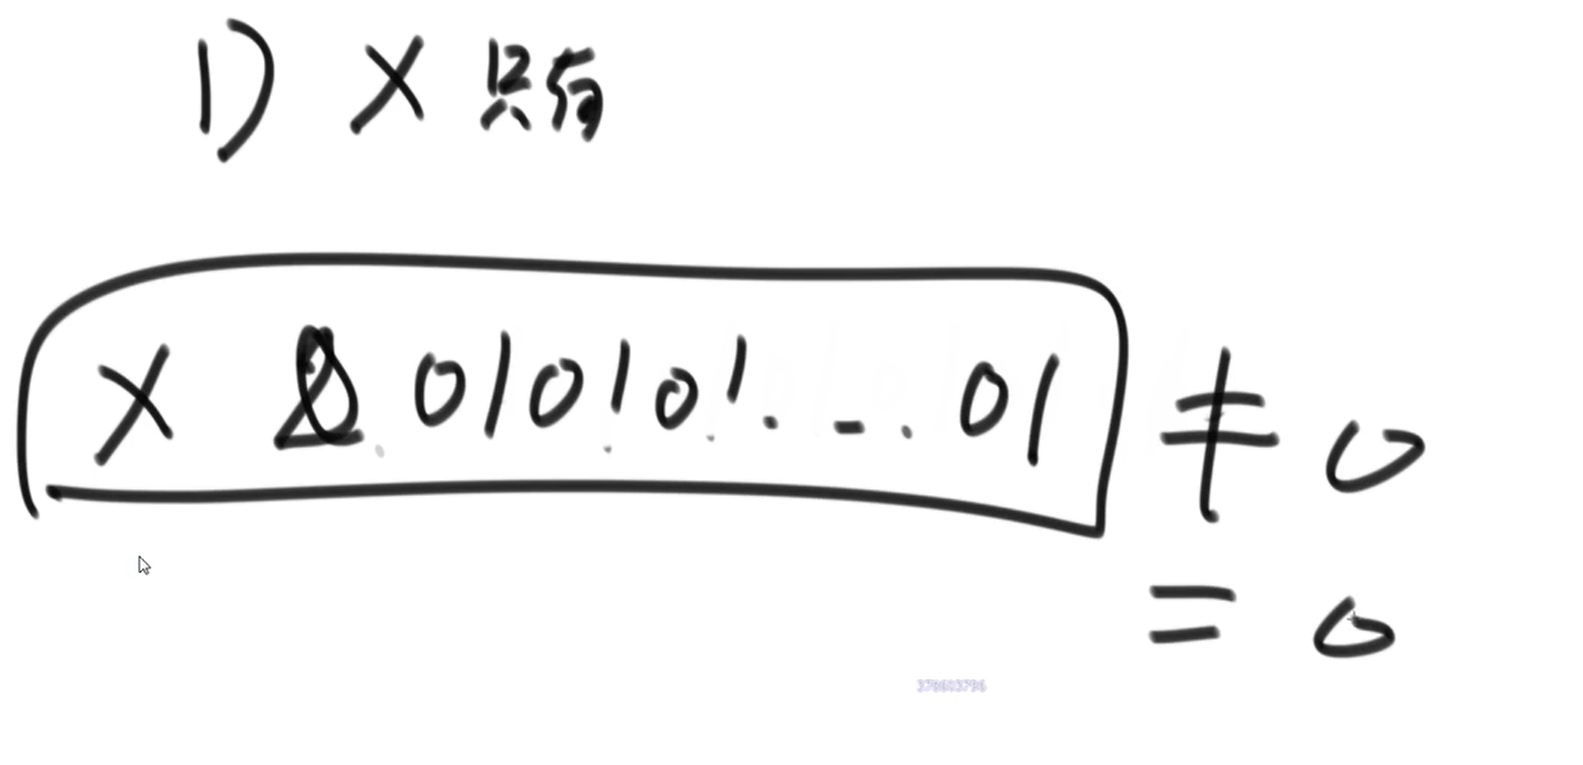 1) X 只有
X & 010101.-.. 01 ≠ 0
= 0
378603796